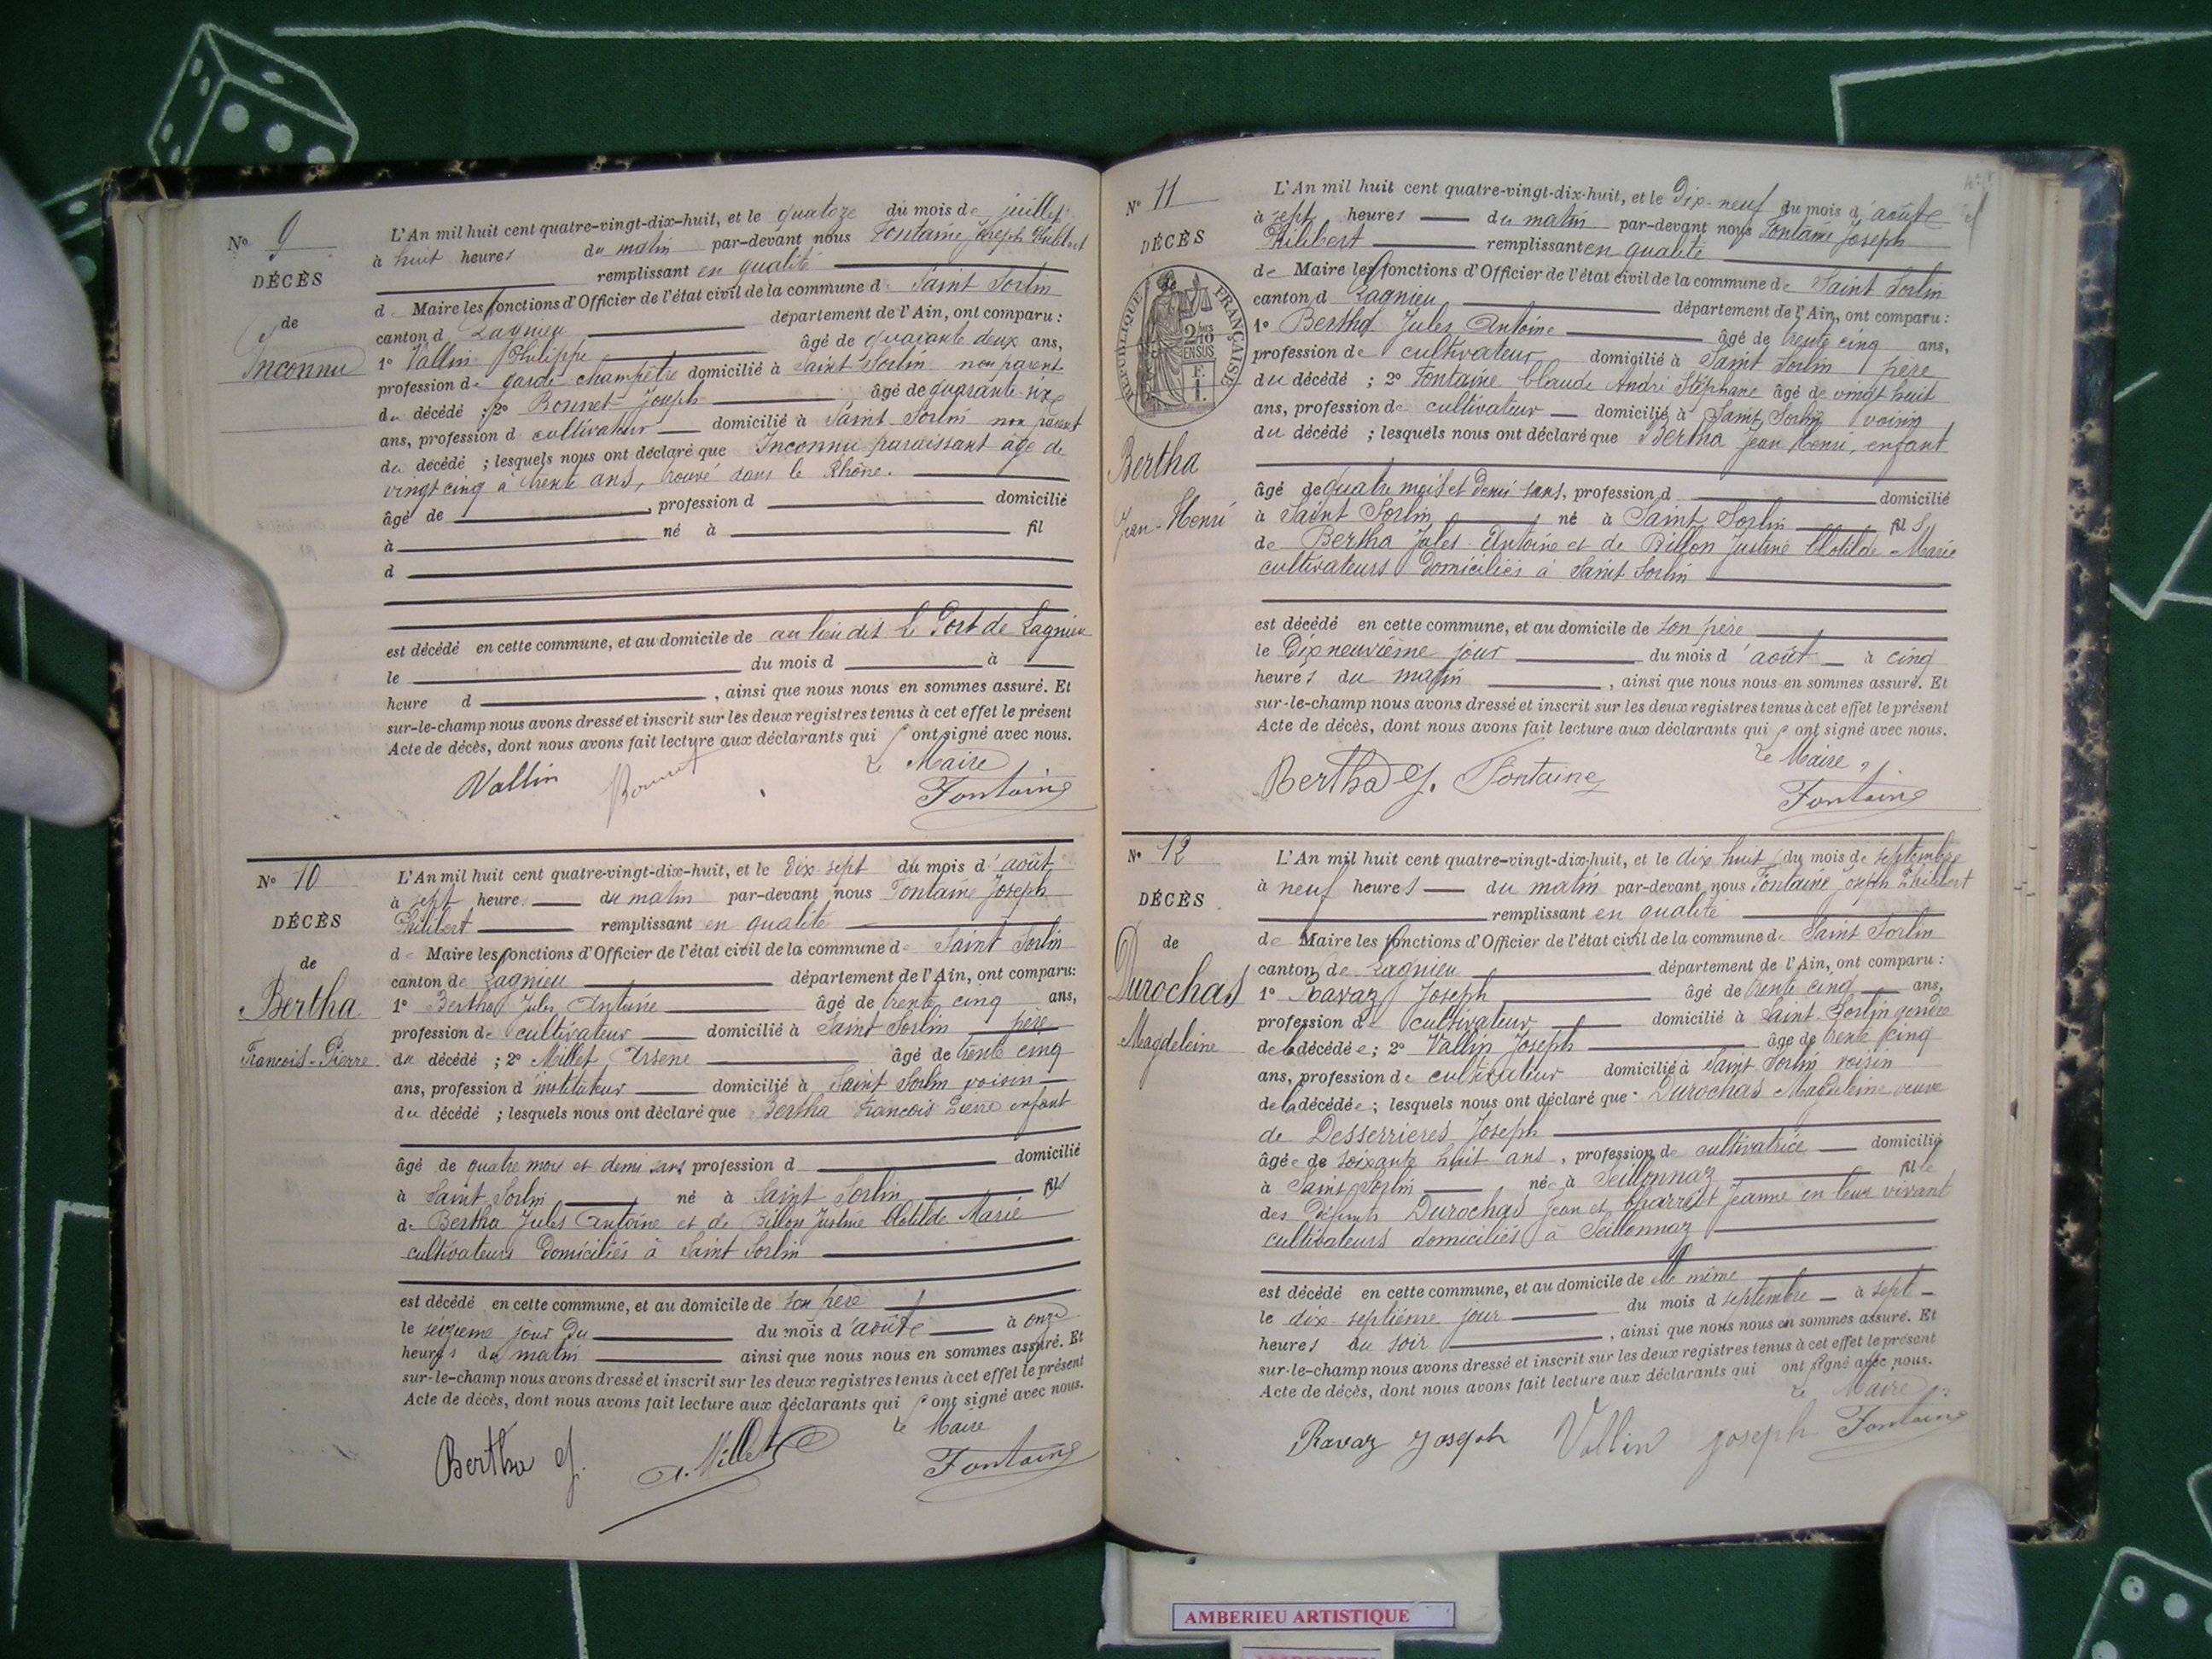 N° 9
DÉCÈS
de
Inconnu
L'An mil huit cent quatre-vingt-dix-huit, et le quatoze du mois de juillet
à huit heures du matin par-devant nous Fontaine Joseph Philibert
remplissant en qualité
d Maire les fonctions d'Officier de l'état civil de la commune d Saint Sorlin
canton d Lagnieu département de l'Ain, ont comparu :
1° Vallin Philippe âgé de quarante deux ans,
profession de garde-champêtre domicilié à Saint Sorlin non parent
du décédé ; 2° Bonnet Joseph âgé de quarante-six
ans, profession d cultivateur domicilié à Saint Sorlin non parent
du décédé ; lesquels nous ont déclaré que Inconnu paraissant âgé de
vingt cinq à trente ans, trouvé dans le Rhône.
âgé de , profession d domicilié
à né à fil
d
est décédé en cette commune, et au domicile de au lieu dit le Port de Lagnieu
le du mois d à
heure d , ainsi que nous nous en sommes assuré. Et
sur-le-champ nous avons dressé et inscrit sur les deux registres tenus à cet effet le présent
Acte de décès, dont nous avons fait lecture aux déclarants qui ont signé avec nous.
Le Maire
Vallin Bonnet Fontaine
N° 10
DÉCÈS
de
Bertha
François-Pierre
L'An mil huit cent quatre-vingt-dix-huit, et le dix sept du mois d'août
à sept heure du matin par-devant nous Fontaine Joseph
Philibert remplissant en qualité
de Maire les fonctions d'Officier de l'état civil de la commune de Saint Sorlin
canton de Lagnieu département de l'Ain, ont comparu:
1° Bertha Jules Antoine âgé de trente cinq ans,
profession de cultivateur domicilié à Saint Sorlin père
du décédé ; 2° Millet Arsène âgé de trente cinq
ans, profession d instituteur domicilié à Saint Sorlin voisin
du décédé ; lesquels nous ont déclaré que Bertha François Pierre enfant
âgé de quatre mois et demi sans profession d domicilié
à Saint Sorlin né à Saint Sorlin fils
de Bertha Jules Antoine et de Billon Justine Clotilde Marie
cultivateurs domiciliés à Saint Sorlin
est décédé en cette commune, et au domicile de son père
le seizieme jour du du mois d'août à onze
heures du matin ainsi que nous nous en sommes assuré. Et
sur-le-champ nous avons dressé et inscrit sur les deux registres tenus à cet effet le présent
Acte de décès, dont nous avons fait lecture aux déclarants qui ont signé avec nous.
Le Maire
Bertha J. A. Millet Fontaine
N° 11
DÉCÈS
RÉPUBLIQUE FRANÇAISE
2/10
EN SUS
F.
1.
Bertha
Jean-Henri
L'An mil huit cent quatre-vingt-dix-huit, et le Dix-neuf du mois d'août
à sept heures du matin par-devant nous Fontaine Joseph
Philibert remplissant en qualité
de Maire les fonctions d'Officier de l'état civil de la commune de Saint Sorlin
canton d Lagnieu département de l'Ain, ont comparu :
1° Bertha Jules Antoine âgé de trente cinq ans,
profession de cultivateur domicilié à Saint Sorlin père
du décédé ; 2° Fontaine Claude André Stéphane âgé de vingt huit
ans, profession de cultivateur domicilié à Saint Sorlin voisin
du décédé ; lesquels nous ont déclaré que Bertha Jean Henri, enfant
âgé de quatre mois et demi sans, profession d domicilié
à Saint Sorlin né à Saint Sorlin fils
de Bertha Jules Antoine et de Billon Justine Clotilde Marie
cultivateurs domiciliés à Saint Sorlin
est décédé en cette commune, et au domicile de son père
le Dix neuvième jour du mois d'août à cinq
heures du matin , ainsi que nous nous en sommes assuré. Et
sur-le-champ nous avons dressé et inscrit sur les deux registres tenus à cet effet le présent
Acte de décès, dont nous avons fait lecture aux déclarants qui ont signé avec nous.
Le Maire
Bertha J. Fontaine Fontaine
N° 12
DÉCÈS
de
Durochas
Magdeleine
L'An mil huit cent quatre-vingt-dix-huit, et le dix huit du mois de septembre
à neuf heures du matin par-devant nous Fontaine Joseph Philibert
remplissant en qualité
de Maire les fonctions d'Officier de l'état civil de la commune de Saint Sorlin
canton de Lagnieu département de l'Ain, ont comparu :
1° Ravaz Joseph âgé de trente cinq ans,
profession de cultivateur domicilié à Saint Sorlin gendre
de la décédée ; 2° Vallin Joseph âgé de trente cinq
ans, profession de cultivateur domicilié à Saint Sorlin voisin
de la décédée ; lesquels nous ont déclaré que Durochas Magdeleine veuve
de Desserrieres Joseph
âgée de soixante huit ans , profession de cultivatrice domicilié
à Saint Sorlin née à Seillonnaz fille
des défunts Durochas Jean et Jeanne en leur vivant
cultivateurs domiciliés à Seillonnaz
est décédé en cette commune, et au domicile de elle même
le dix septième jour du mois d septembre à sept
heures du soir , ainsi que nous nous en sommes assuré. Et
sur-le-champ nous avons dressé et inscrit sur les deux registres tenus à cet effet le présent
Acte de décès, dont nous avons fait lecture aux déclarants qui ont signé avec nous.
Le Maire
Ravaz Joseph Vallin Joseph Fontaine
AMBERIEU ARTISTIQUE